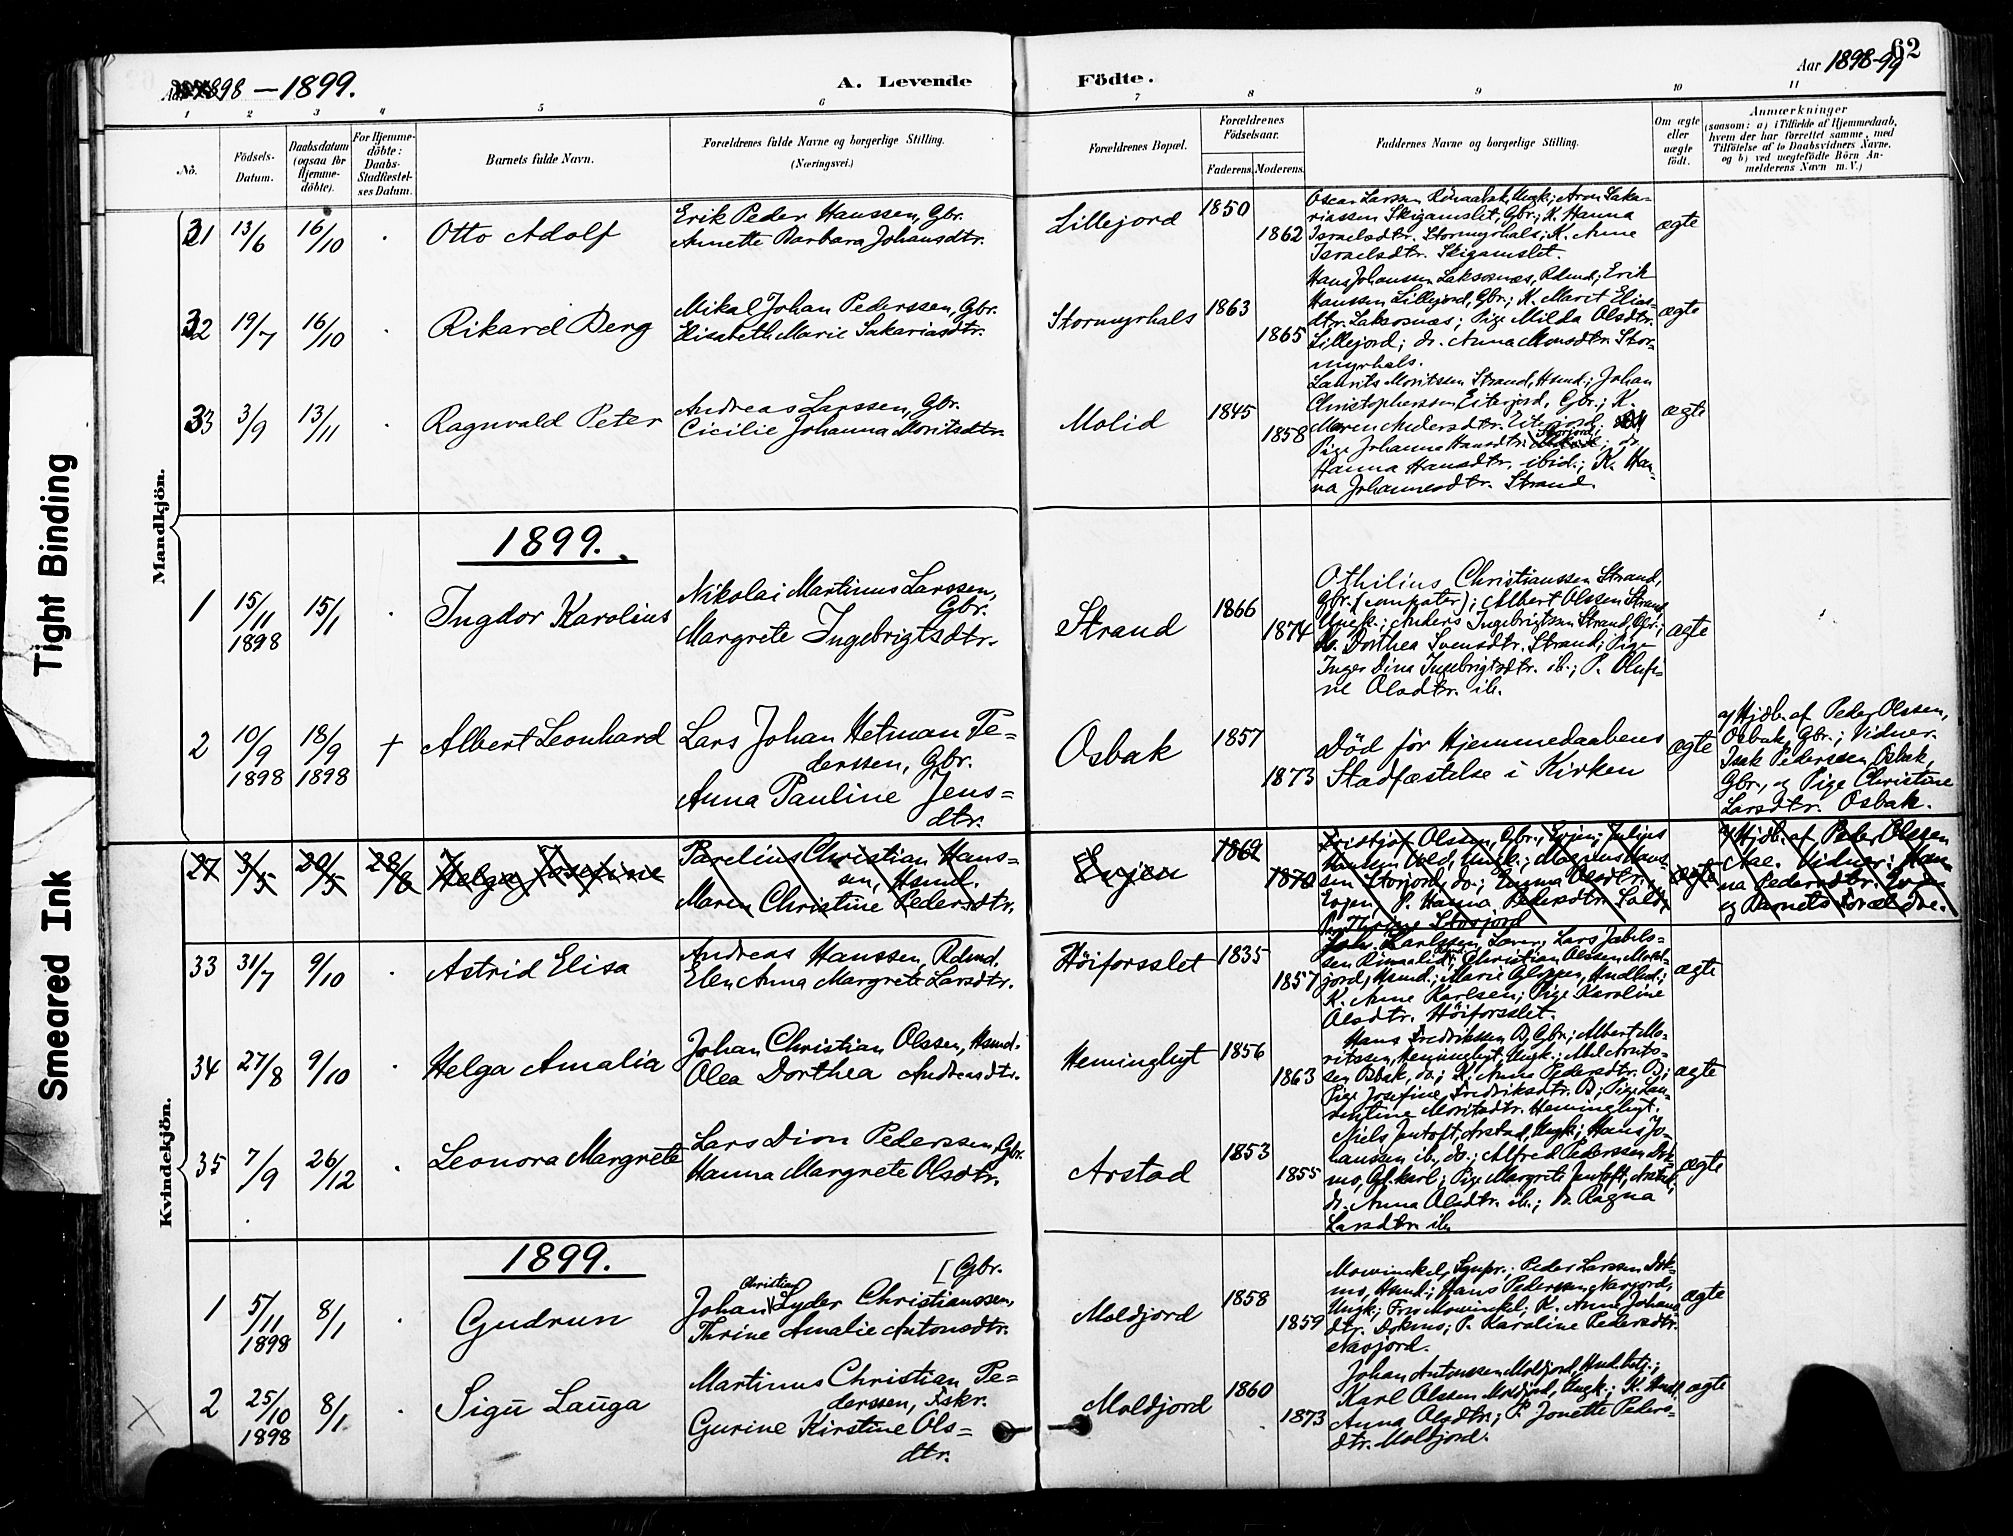 Aar 1898 — 1899.
A. Levende
Födte.
Aar 1898-99
62
1 2 3 4 5 6 7 8 9 10 11
No.
Födsels-
Datum.
Daabsdatum
(ogsaa för
Hjemme-
döbte).
For Hjemme-
döbte:
Daabs-
Stadfæstel-
ses Datum.
Barnets fulde Navn.
Forældrenes fulde Navne og borgerlige Stilling.
(Næringsvei.)
Forældrenes Bopæl.
Forældrenes
Födselsaar.
Faderens. Moderens.
Faddernes Navne og borgerlige Stilling.
Om ægte
eller
uægte
födt.
Anmærkninger
(saasom: a) i Tilfælde af Hjemmedaab,
hvem der har forrettet samme, med
Tilföielse af to Daabsvidners Navne,
og b) ved uægtefödte Börn An-
melderens Navn m. V.)
Mandkjön.
31 13/6 16/10 . Otto Adolf
Erik Peder Hanssen, Gbr.
Annette Barbara Johansdtr.
Lillejord 1850 1862
Oscar Larssen Rönaabak, Ungk.; Aron Saka-
riassen Skigamslet, Gbr.; K. Hanna
Israelsdtr. Stormyrhals; K. Anne
Israelsdtr. Skigamslet.
ægte
32 19/7 16/10 . Rikard Berg
Mikal Johan Pederssen, Gbr.
Elisabeth Marie Sakariasdtr.
Stormyrhals 1863 1865
Hans Johanssen Laksosnæs, Rdmd.; Erik
Hanssen Lillejord, Gbr.; K. Marit Elias-
dtr. Laksosnæs; Pige Milda Olsdtr.
Lillejord; do. Anna Monsdtr. Stor-
myrhals.
ægte
33 3/9 13/11 . Ragnvald Peter
Andreas Larssen, Gbr.
Cicilie Johanna Moritsdtr.
Molid 1845 1858
Laurits Moritssen Strand, Hsmd.; Johan
Christopherssen Eiterjord, Gbr.; K.
Maren Andersdtr. Eiterjord;
Pige Johanna Hansdtr. Storjord; do.
Hanna Hansdtr. ibid.; K. Han-
na Johannesdtr. Strand.
ægte
1899.
1 15/11 1898 15/1 . Ingdor Karolius
Nikolai Martinus Larssen,
Gbr.
Margrete Ingebrigtsdtr.
Strand 1866 1874
Othilius Christianssen Strand,
Gbr. (compater); Albert Olssen Strand
Ungk.; Anders Ingebrigtssen Strand, Gbr.;
K. Dorthea Svensdtr. Strand; Pige
Inger Dina Ingebrigtsdtr. ib.; P. Olufi-
ne Olsdtr. ib.
ægte
2 10/9 1898 18/9 1898 † Albert Leonhard
Lars Johan Hetman Pe-
derssen, Gbr.
Anna Pauline Jens-
dtr.
Osbak 1857 1873
Död för Hjemmedaabens
Stadfæstelse i Kirken
ægte
a) Hjdb. af Peder Olssen,
Osbak, Gbr.; Vidner.
Isak Pederssen, Osbak,
Gbr., og Pige Christine
Larsdtr. Osbak.
27 3/5 20/5 28/8 Helga Josefine
Parelius Christian Hans-
sen, Hsmd.
Maren Christine Pedersdtr.
Evjen 1862 1870
Fridtjof Olssen, Gbr., Evjen; Julius
Hanssen Vold, Ungk.; Magnus Hans-
sen Storjord, do.; Emma Olsdtr.
Evjen, P. Hanna Pedersdtr.
Storjord
ægte
a) Hjdb. af Peder Olssen
Aae. Vidner: Han-
na Pedersdtr. Evjen
og Barnets Forældre.
Kvindekjön.
33 31/7 9/10 . Astrid Elisa
Andreas Hanssen, Rdmd.
Elen Anna Margrete Larsdtr.
Höiforsslet 1835 1857
Joh. Karlssen, Lærer, Lars Jakobs-
sen; Christian Olssen Mold-
jord, Hsmd.; Marie Gloppen, Hndlsd.;
K. Anne Karlsen; Pige Karoline
Olsdtr. Höiforsslet.
ægte
34 27/8 9/10 . Helga Amalia
Johan Christian Olssen, Hsmd.
Olea Dorthea Andreasdtr.
Heminghyt 1856 1863
Hans Fredrikssen Ø, Gbr.; Albert Mo-
ritssen, Heminghyt, Ungk.; Mel Arnts-
sen Osbak, do.; K. Anna Pedersdtr. Ø;
Pige Josefine Fredriksdtr. Ø; Pige Lau-
rentine Moritsdtr. Heminghyt.
ægte
35 7/9 26/12 . Leonora Margrete
Lars Dion Pederssen, Gbr.
Hanna Margrete Olsdtr.
Arstad 1853 1855
Niels Jentoft, Arstad, Ungk.; Hans Jo-
hanssen ib., do.; Alfred Pederssen Dok-
mo, Gf.karl; Pige Margrete Jentoft, Arstad,
do. Anna Olsdtr. ib.; do. Ragna
Larsdtr. ib.
ægte
1899.
1 5/11 1898 8/1 . Gudrun
[Gbr.
Christian
Johan Lyder Christianssen,
Thrine Amalie Antonsdtr.
Moldjord 1858 1859
Mowinckel, Sgnpr.; Peder Larssen Dok-
mo, Hsmd.; Hans Pederssen Næsjord,
Ungk.; Fru Mowinckel; K. Anne Johans-
dtr. Dokmo; P. Karoline Pedersdtr.
Næsjord.
ægte
2 25/10 1898 8/1 . Sigū Laūga
Martinus Christian Pe-
derssen, Fskr.
Gurine Kirstine Ols-
dtr.
Moldjord 1860 1873
Johan Antonssen Moldjord, Hnd.betj.;
Karl Olssen Moldjord, Ungk.; K. Hndl.
Anna Olsdtr.; P. Jonette Peders-
dtr. Moldjord.
ægte
Tight Binding
Smeared Ink